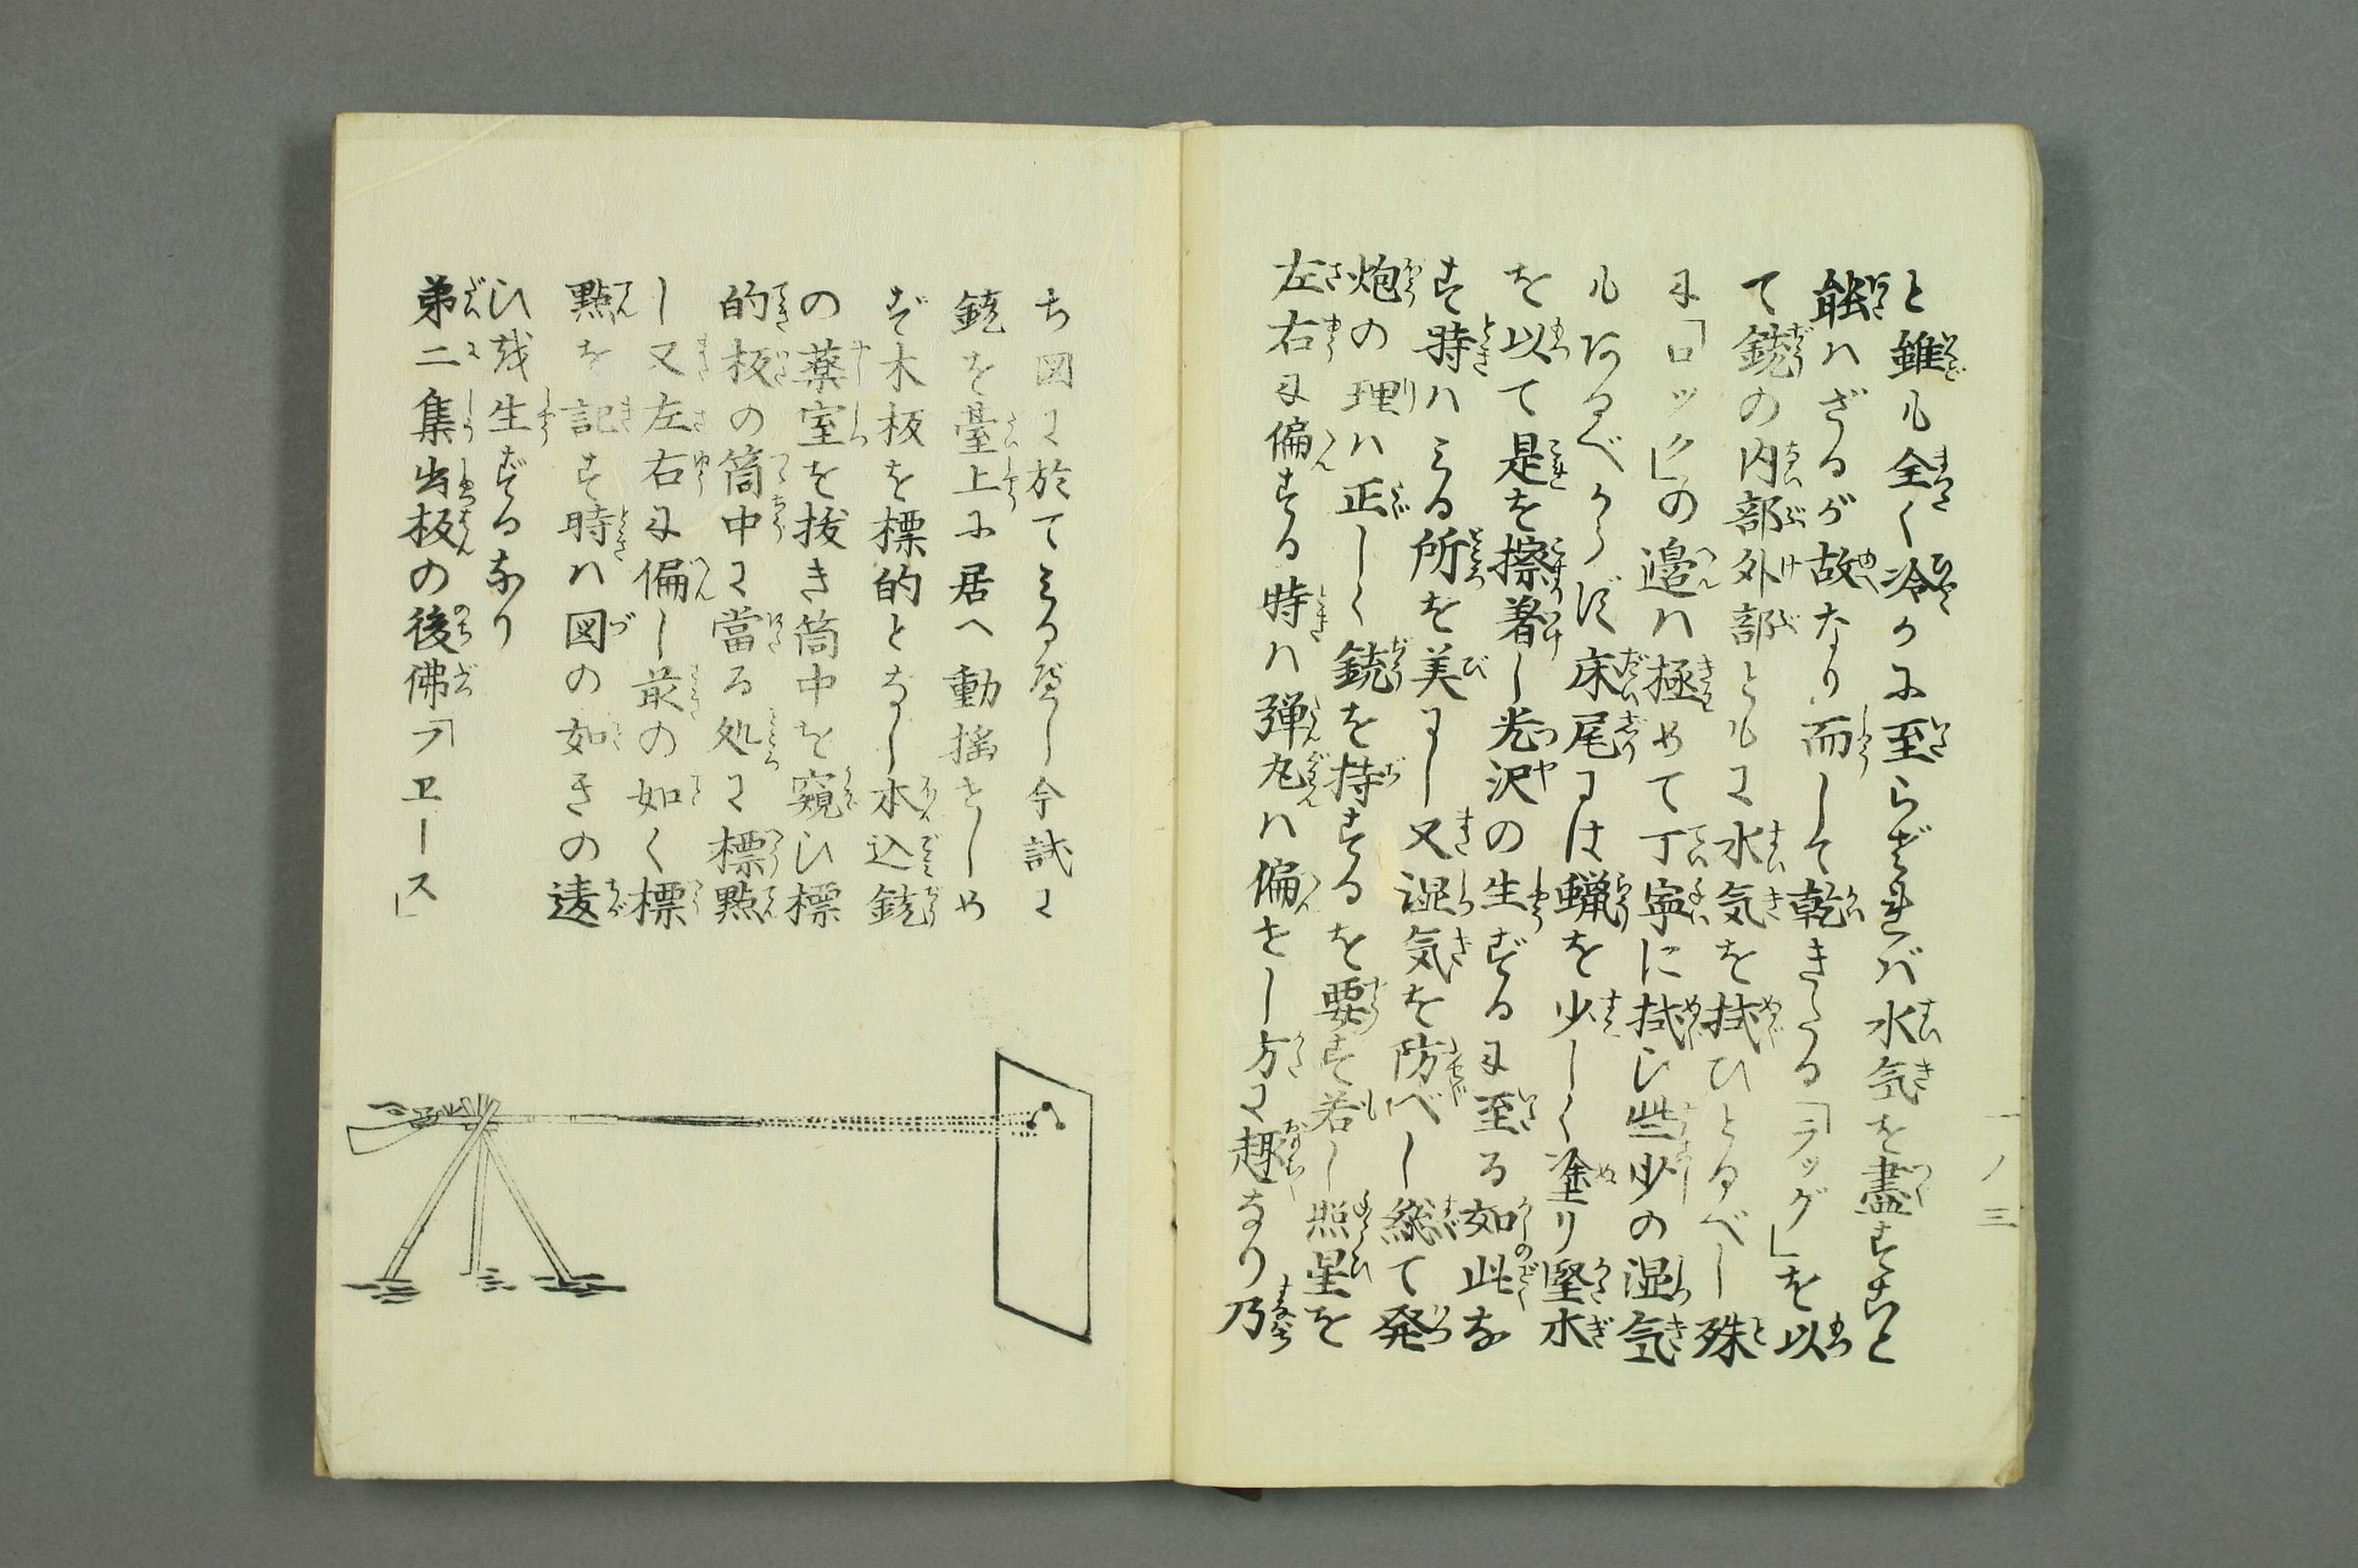 と雖も全く冷かに至らざれバ水気を盡すこと
能ハざるが故なり而して乾きたる「ラッグ」を以
て銃の内部外部ともに水気を拭ひとるべし殊
に「ロック」の邉ハ極めて丁寧に拭ひ些少の湿気
もあるべからず床尾には蝋を少しく塗り堅木
を以て是を擦着し光沢の生ずるに至る如此な
す時ハみる所を美にし又湿気を防べし総て発
炮の理ハ正しく銃を持するを要す若し照星を
左右に偏する時ハ弾丸ハ偏せし方に趣なり乃
一ノ三
ち図に於てみるべし今試に
銃を臺上に居へ動揺せしめ
ず木板を標的となし水込銃
の薬室を抜き筒中を窺ひ標
的板の筒中に當る処に標點
し又左右に偏し前の如く標
點を記す時ハ図の如きの違
ひ残生ずるなり
弟二集出板の後佛「フエース」